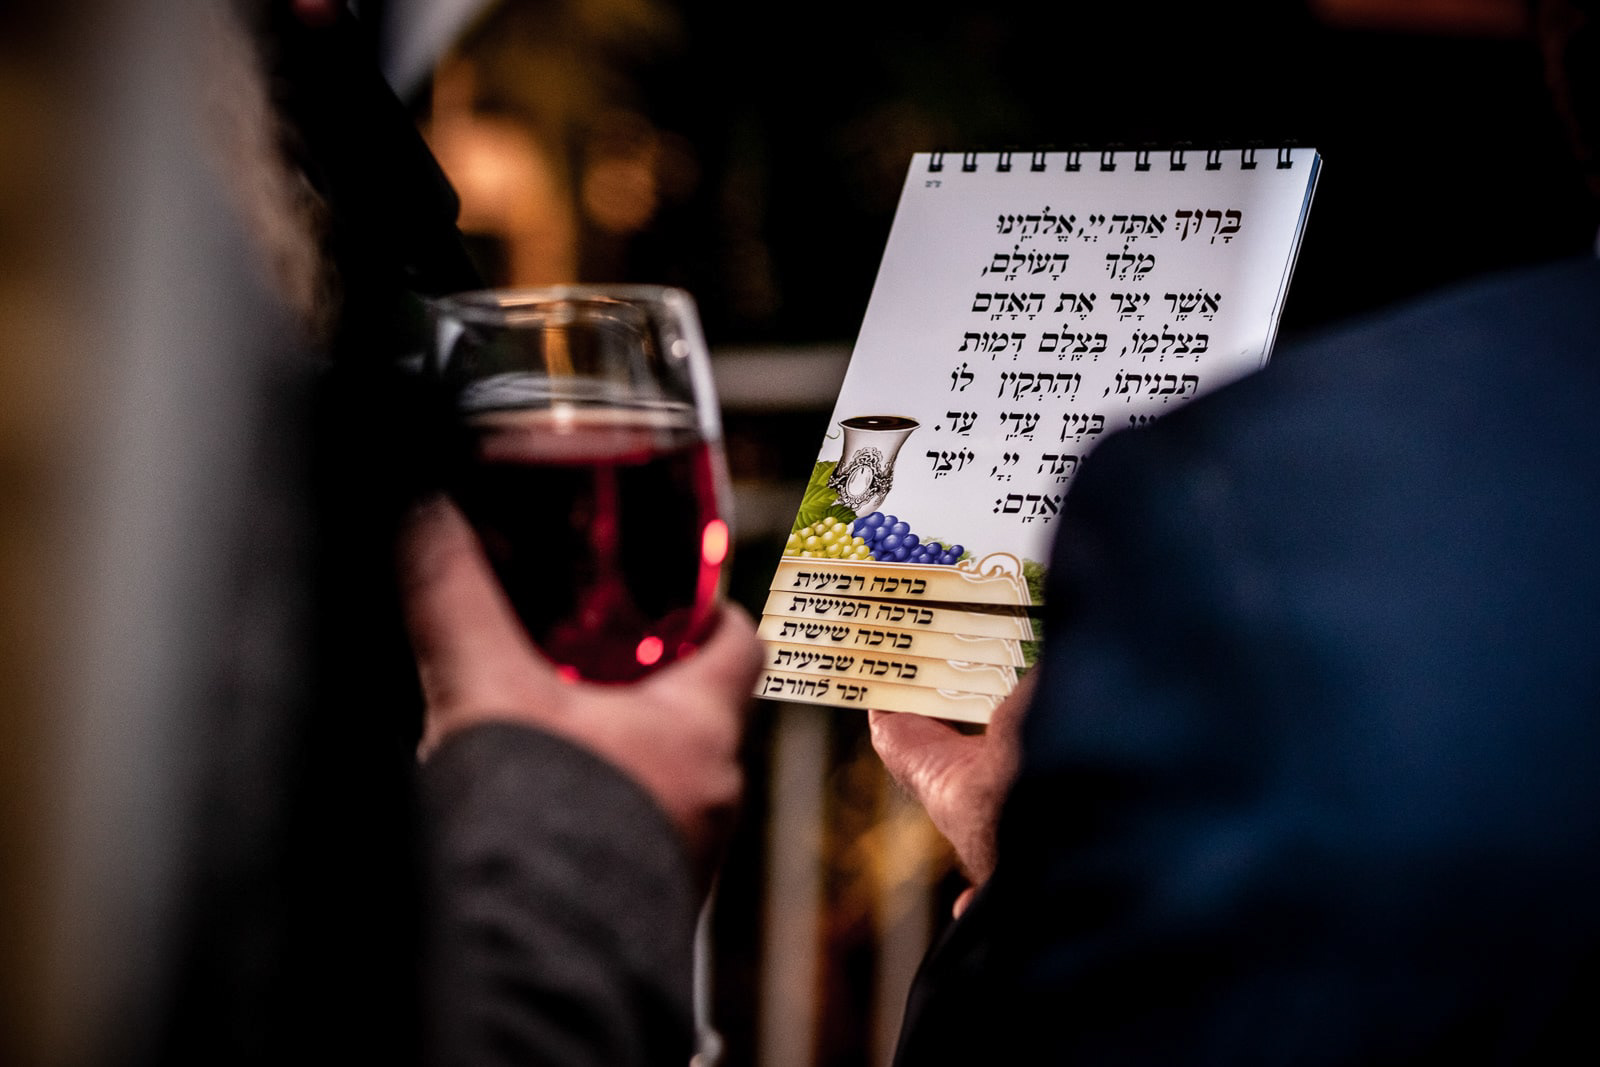 בָּרוּךְ אַתָּה יְיָ, אֱלֹהֵינוּ
מֶלֶךְ הָעוֹלָם,
אֲשֶׁר יָצַר אֶת הָאָדָם
בְּצַלְמוֹ, בְּצֶלֶם דְּמוּת
תַּבְנִיתוֹ, וְהִתְקִין לוֹ
בִּנְיַן עֲדֵי עַד.
יְיָ, יוֹצֵר
ברכה רביעית
ברכה חמישית
ברכה שישית
ברכה שביעית
זכר לחורבן